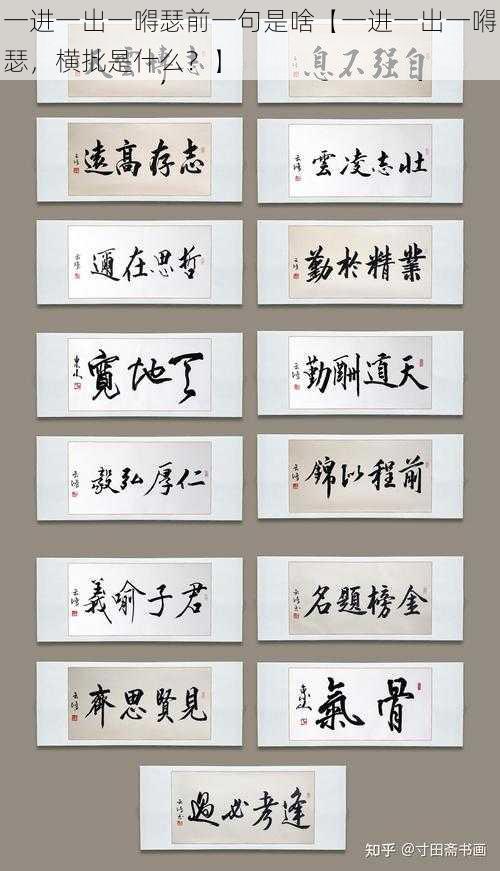 一进一出一嘚瑟前一句是啥【一进一出一嘚
瑟，横批是什么？】
自强不息
志存高遠
壯志凌雲
哲思在邇
業精於勤
天地寬
天道酬勤
仁厚弘毅
前程似錦
君子喻義
金榜題名
見賢思齊
骨氣
逢考必過
知乎 @寸田斋书画